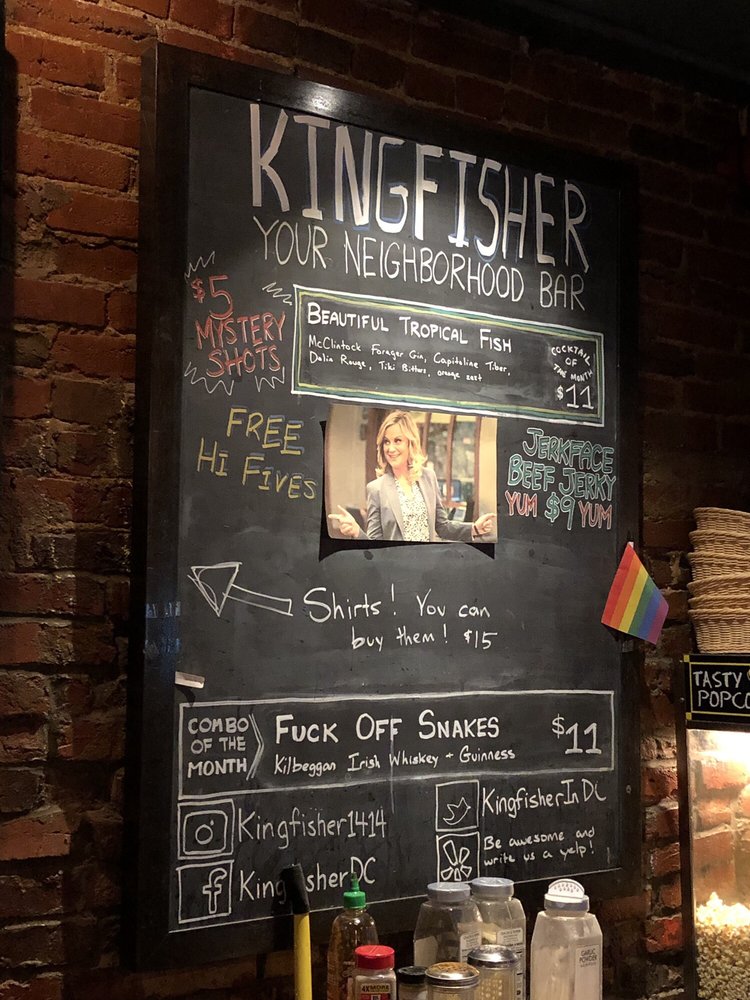 KINGFISHER
YOUR NEIGHBORHOOD BAR
$5
MYSTERY
SHOTS
BEAUTIFUL TROPICAL FISH
McClintock Forager Gin, Capitoline Tiber,
Dolin Rouge, Tiki Bitters, orange zest
COCKTAIL
OF
THE MONTH
$11
FREE
HI FIVES
JERKFACE
BEEF JERKY
YUM $9 YUM
Shirts! You can
buy them! $15
COMBO
OF THE
MONTH
FUCK OFF SNAKES
$11
Kilbeggan Irish Whiskey + Guinness
Kingfisher1414
KingfisherInDC
KingfisherDC
Be awesome and
write us a yelp!
TASTY
POPCO
GARLIC
POWDER